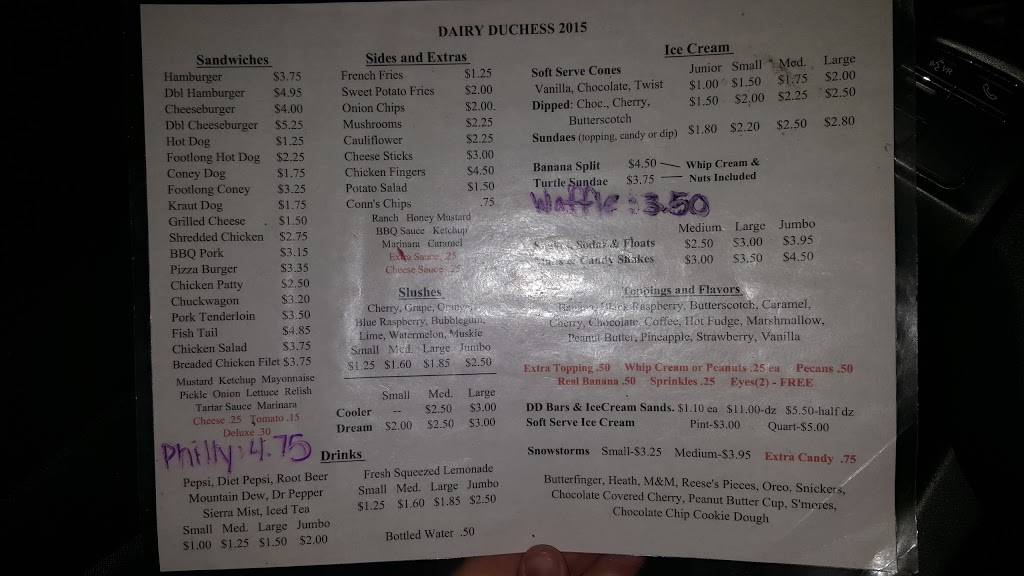 DAIRY DUCHESS 2015
Sandwiches
Hamburger $3.75
Dbl Hamburger $4.95
Cheeseburger $4.00
Dbl Cheeseburger $5.25
Hot Dog $1.25
Footlong Hot Dog $2.25
Coney Dog $1.75
Footlong Coney $3.25
Kraut Dog $1.75
Grilled Cheese $1.50
Shredded Chicken $2.75
BBQ Pork $3.15
Pizza Burger $3.35
Chicken Patty $2.50
Chuckwagon $3.20
Pork Tenderloin $3.50
Fish Tail $4.85
Chicken Salad $3.75
Breaded Chicken Filet $3.75
Mustard Ketchup Mayonnaise
Pickle Onion Lettuce Relish
Tartar Sauce Marinara
Cheese .25 Tomato .15
Deluxe .30
Philly: 4.75
Sides and Extras
French Fries $1.25
Sweet Potato Fries $2.00
Onion Chips $2.00
Mushrooms $2.25
Cauliflower $2.25
Cheese Sticks $3.00
Chicken Fingers $4.50
Potato Salad $1.50
Conn's Chips .75
Ranch Honey Mustard
BBQ Sauce Ketchup
Marinara Caramel
Extra Sauce .25
Cheese Sauce .25
Slushes
Cherry, Grape, Orange,
Blue Raspberry, Bubblegum,
Lime, Watermelon, Muskie
Small Med. Large Jumbo
$1.25 $1.60 $1.85 $2.50
Small Med. Large
Cooler -- $2.50 $3.00
Dream $2.00 $2.50 $3.00
Drinks
Pepsi, Diet Pepsi, Root Beer
Mountain Dew, Dr Pepper
Sierra Mist, Iced Tea
Small Med. Large Jumbo
$1.00 $1.25 $1.50 $2.00
Fresh Squeezed Lemonade
Small Med. Large Jumbo
$1.25 $1.60 $1.85 $2.50
Bottled Water .50
Ice Cream
Junior Small Med. Large
Soft Serve Cones
Vanilla, Chocolate, Twist $1.00 $1.50 $1.75 $2.00
Dipped: Choc., Cherry, $1.50 $2.00 $2.25 $2.50
Butterscotch
Sundaes (topping, candy or dip) $1.80 $2.20 $2.50 $2.80
Banana Split $4.50 Whip Cream &
Turtle Sundae $3.75 Nuts Included
Waffle: 3.50
Medium Large Jumbo
Sodas & Floats $2.50 $3.00 $3.95
& Candy Shakes $3.00 $3.50 $4.50
Toppings and Flavors
Banana, Black Raspberry, Butterscotch, Caramel,
Cherry, Chocolate, Coffee, Hot Fudge, Marshmallow,
Peanut Butter, Pineapple, Strawberry, Vanilla
Extra Topping .50 Whip Cream or Peanuts .25 ea Pecans .50
Real Banana .50 Sprinkles .25 Eyes(2) - FREE
DD Bars & IceCream Sands. $1.10 ea $11.00-dz $5.50-half dz
Soft Serve Ice Cream Pint-$3.00 Quart-$5.00
Snowstorms Small-$3.25 Medium-$3.95 Extra Candy .75
Butterfinger, Heath, M&M, Reese's Pieces, Oreo, Snickers,
Chocolate Covered Cherry, Peanut Butter Cup, S'mores,
Chocolate Chip Cookie Dough